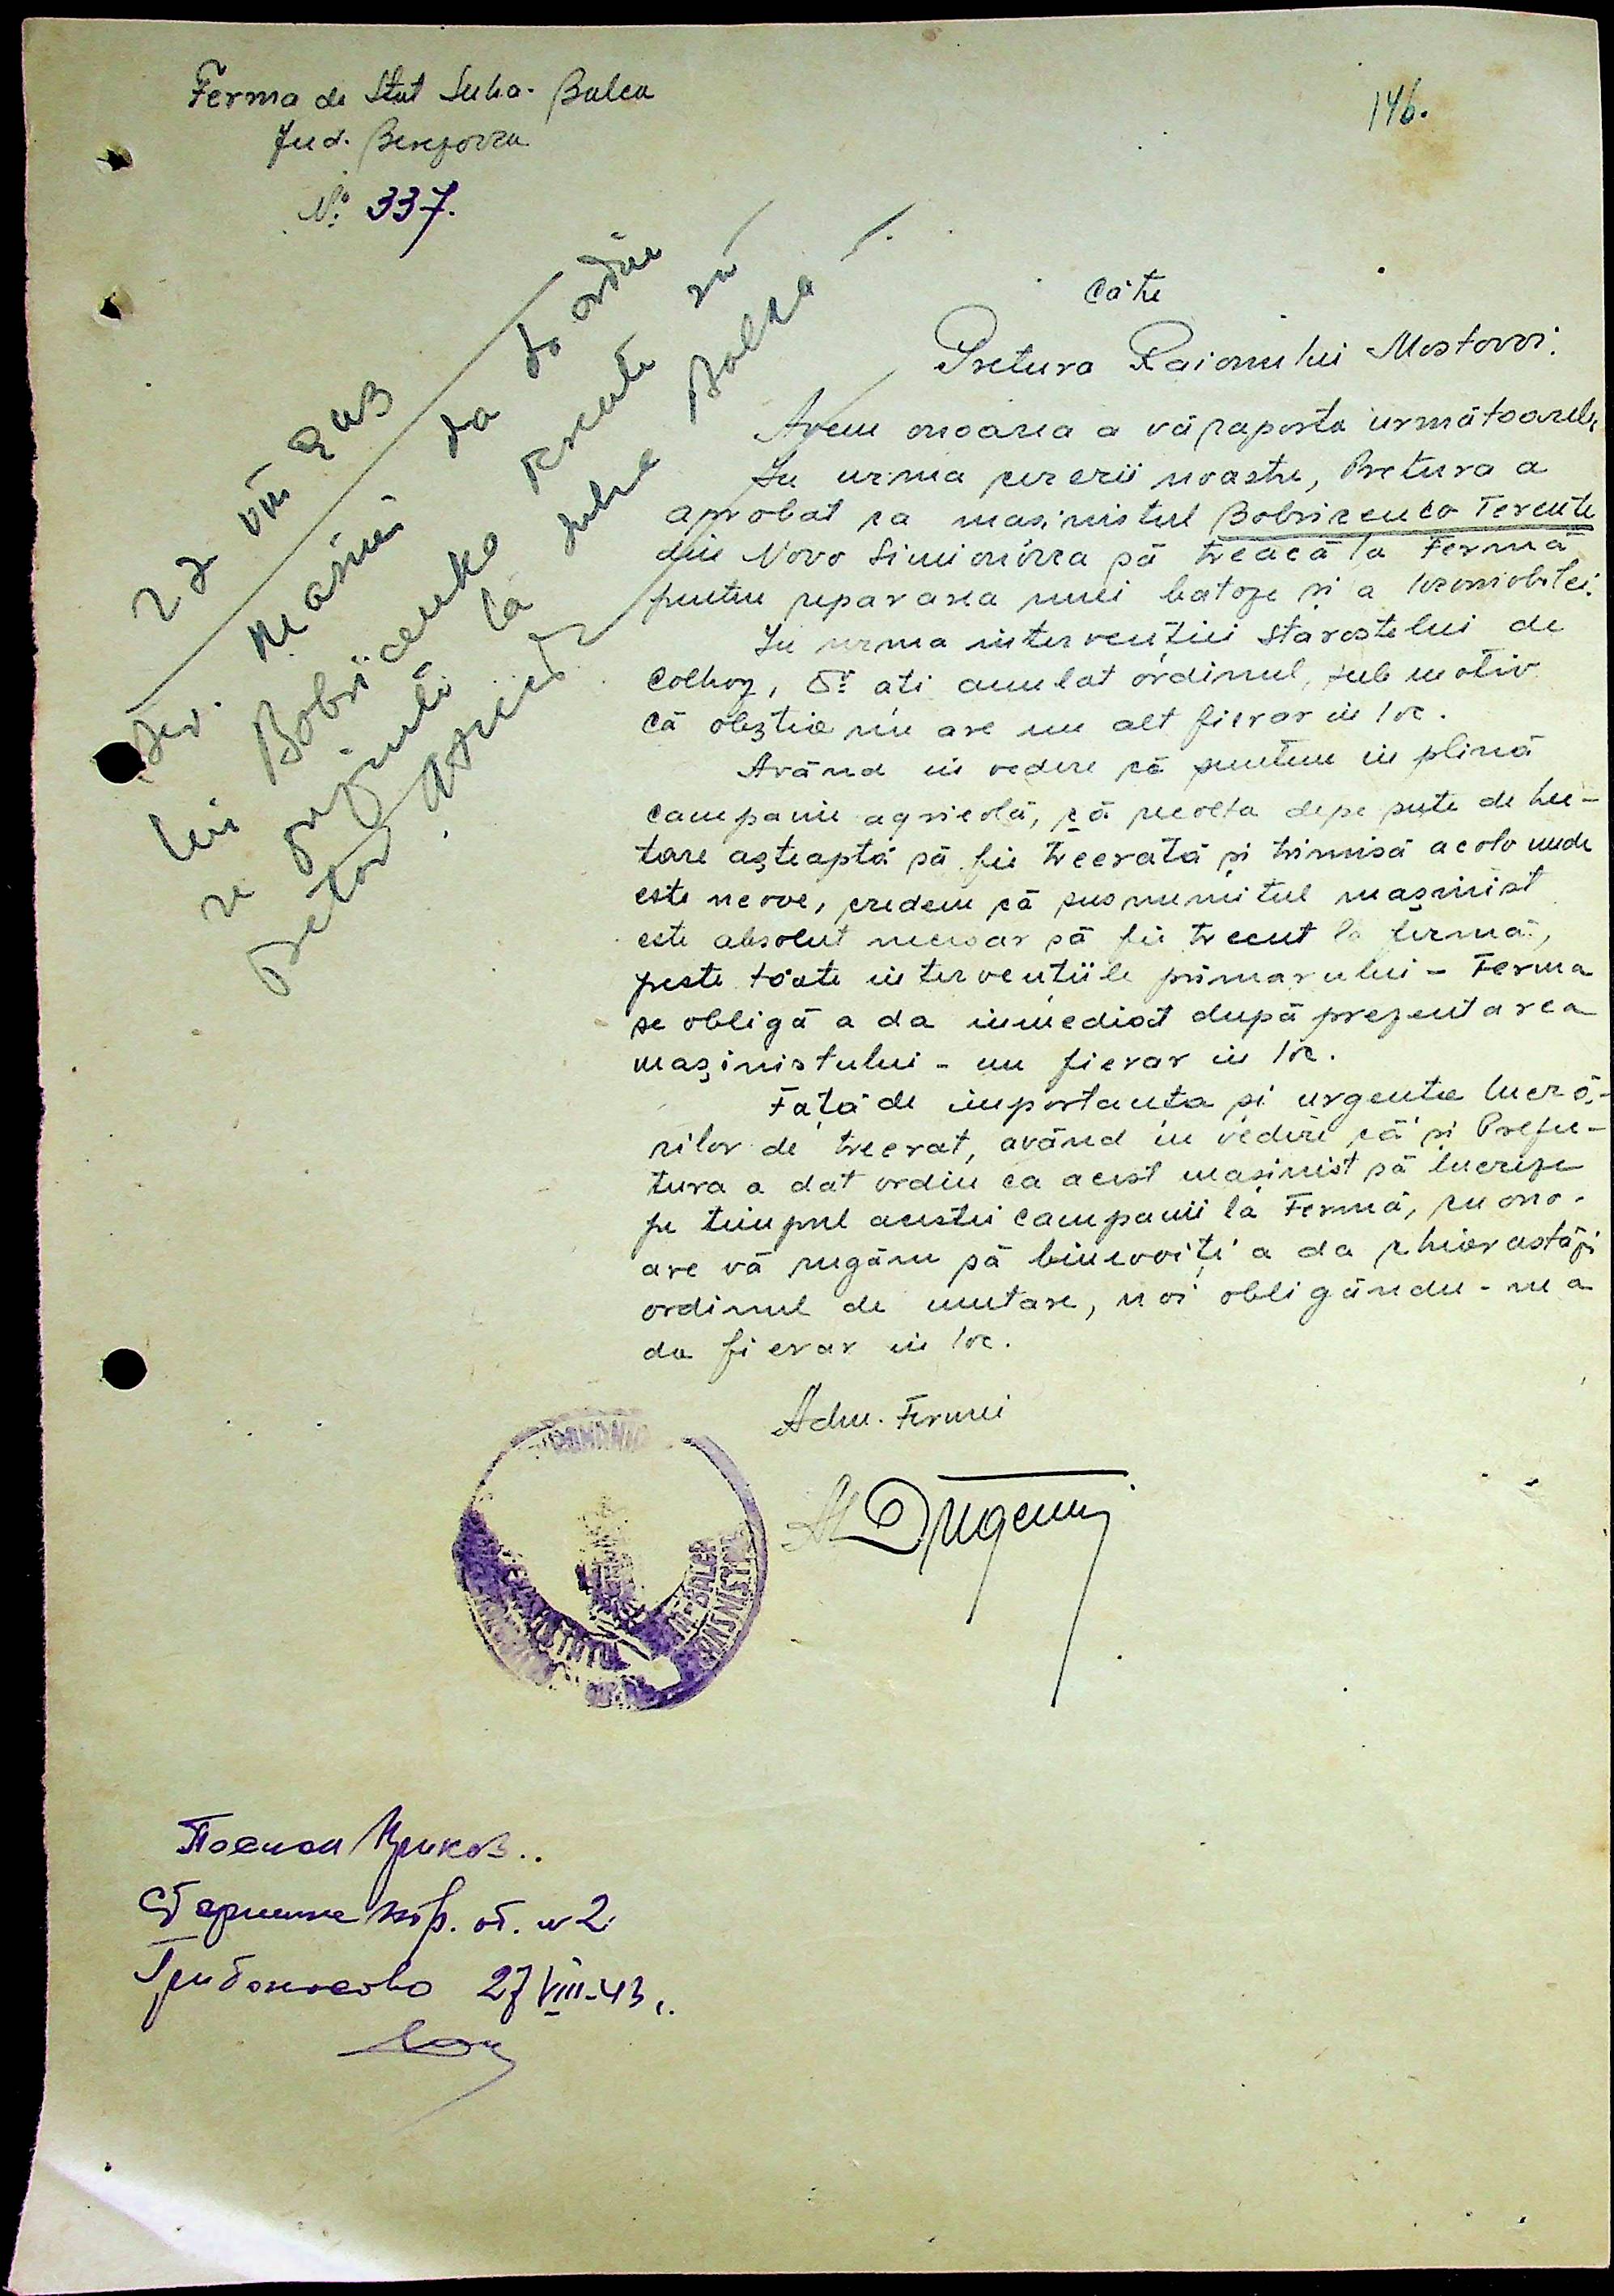 Ferma de Stat Suha-Balca
Jud. Berezovca
No. 337.
146.
Către
Pretura Raionului Mostovoi.
Avem onoarea a vă raporta următoarele,
In urma cererii noastre, Pretura a
aprobat ca masinistul Bobricenco Terente
din Novo Simionovca să treacă la Fermă
pentru repararea unei batoze și a locomobilei.
In urma intervenției starostelui de
Colhoz, Dv. ati anulat ordinul, sub motiv
că obștia nu are un alt fierar in loc.
Având in vedere că suntem in plină
campanie agricolă, că recolta depe sute de hec-
tare așteaptă să fie treerată și trimisă acolo unde
este nevoe, credem că susnumitul mașinist
este absolut necesar să fie trecut la fermă,
peste toate intervențiile primarului - Ferma
se obligă a da immediat după prezentarea
mașinistului - un fierar in loc.
Față de importanta și urgenta lucră-
rilor de treerat, având in vedere că și Prefec-
tura a dat ordin ca acest mașinist să lucreze
pe timpul acestei campanii la Fermă, cu ono-
are vă rugăm să binevoiți a da chiar astăzi
ordinul de mutare, noi obligându-ne a
da fierar in loc.
Adm. Fermei
27 VIII 943
Serv. Masini va da ordin
lui Bobricenko Terente să
se prezinte la Suha Balca
Pretor
ROMANIA
27 VIII-43